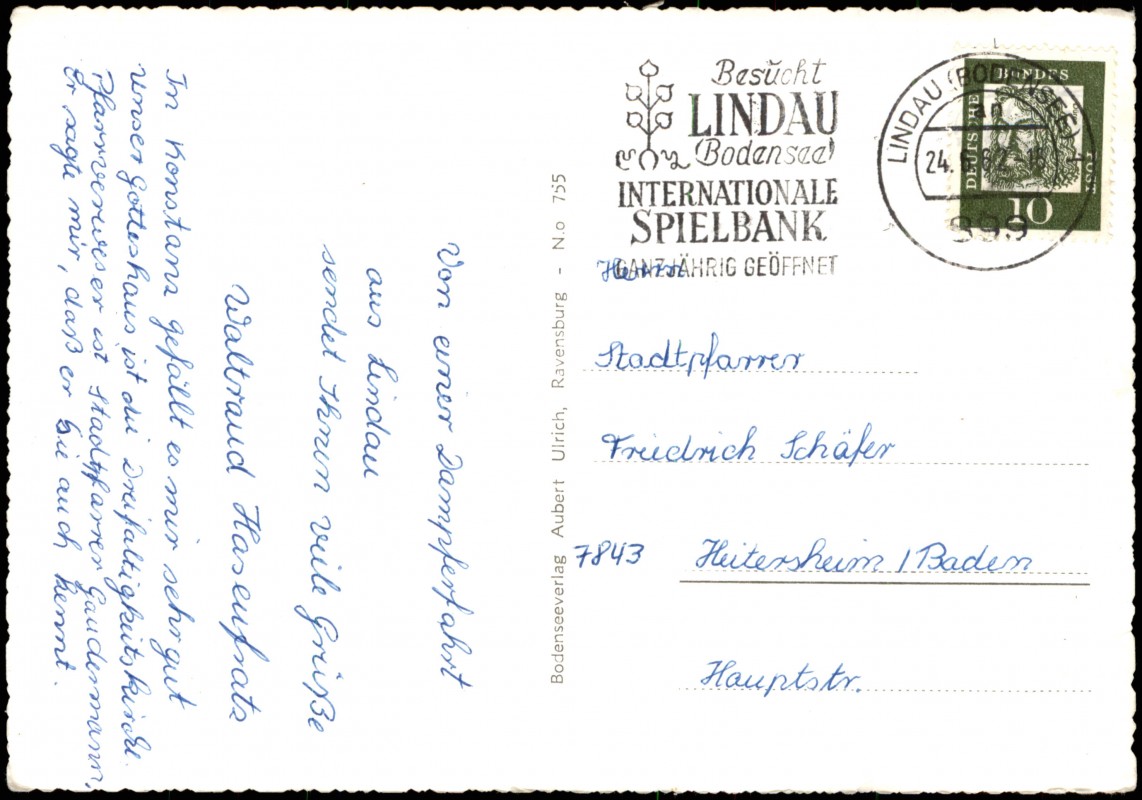 Von einer Dampferfahrt
aus Lindau
sendet Ihnen viele Grüße
Waltraud Hasenfratz
In Konstanz gefällt es mir sehr gut
unser Gotteshaus ist die Dreifaltigkeitskirche.
Pfarrverweser ist Stadtpfarrer Gaudermann,
Er sagte mir, daß er Sie auch kennt.
Bodenseeverlag Aubert Ulrich, Ravensburg - N.o 755
Besucht
LINDAU
(Bodensee)
INTERNATIONALE
SPIELBANK
GANZJÄHRIG GEÖFFNET
LINDAU (BODENSEE) 1
24. 6.62.-18
899
DEUTSCHE
BUNDES
POST
10
Herrn
Stadtpfarrer
Friedrich Schäfer
7843 Heitersheim / Baden
Hauptstr.